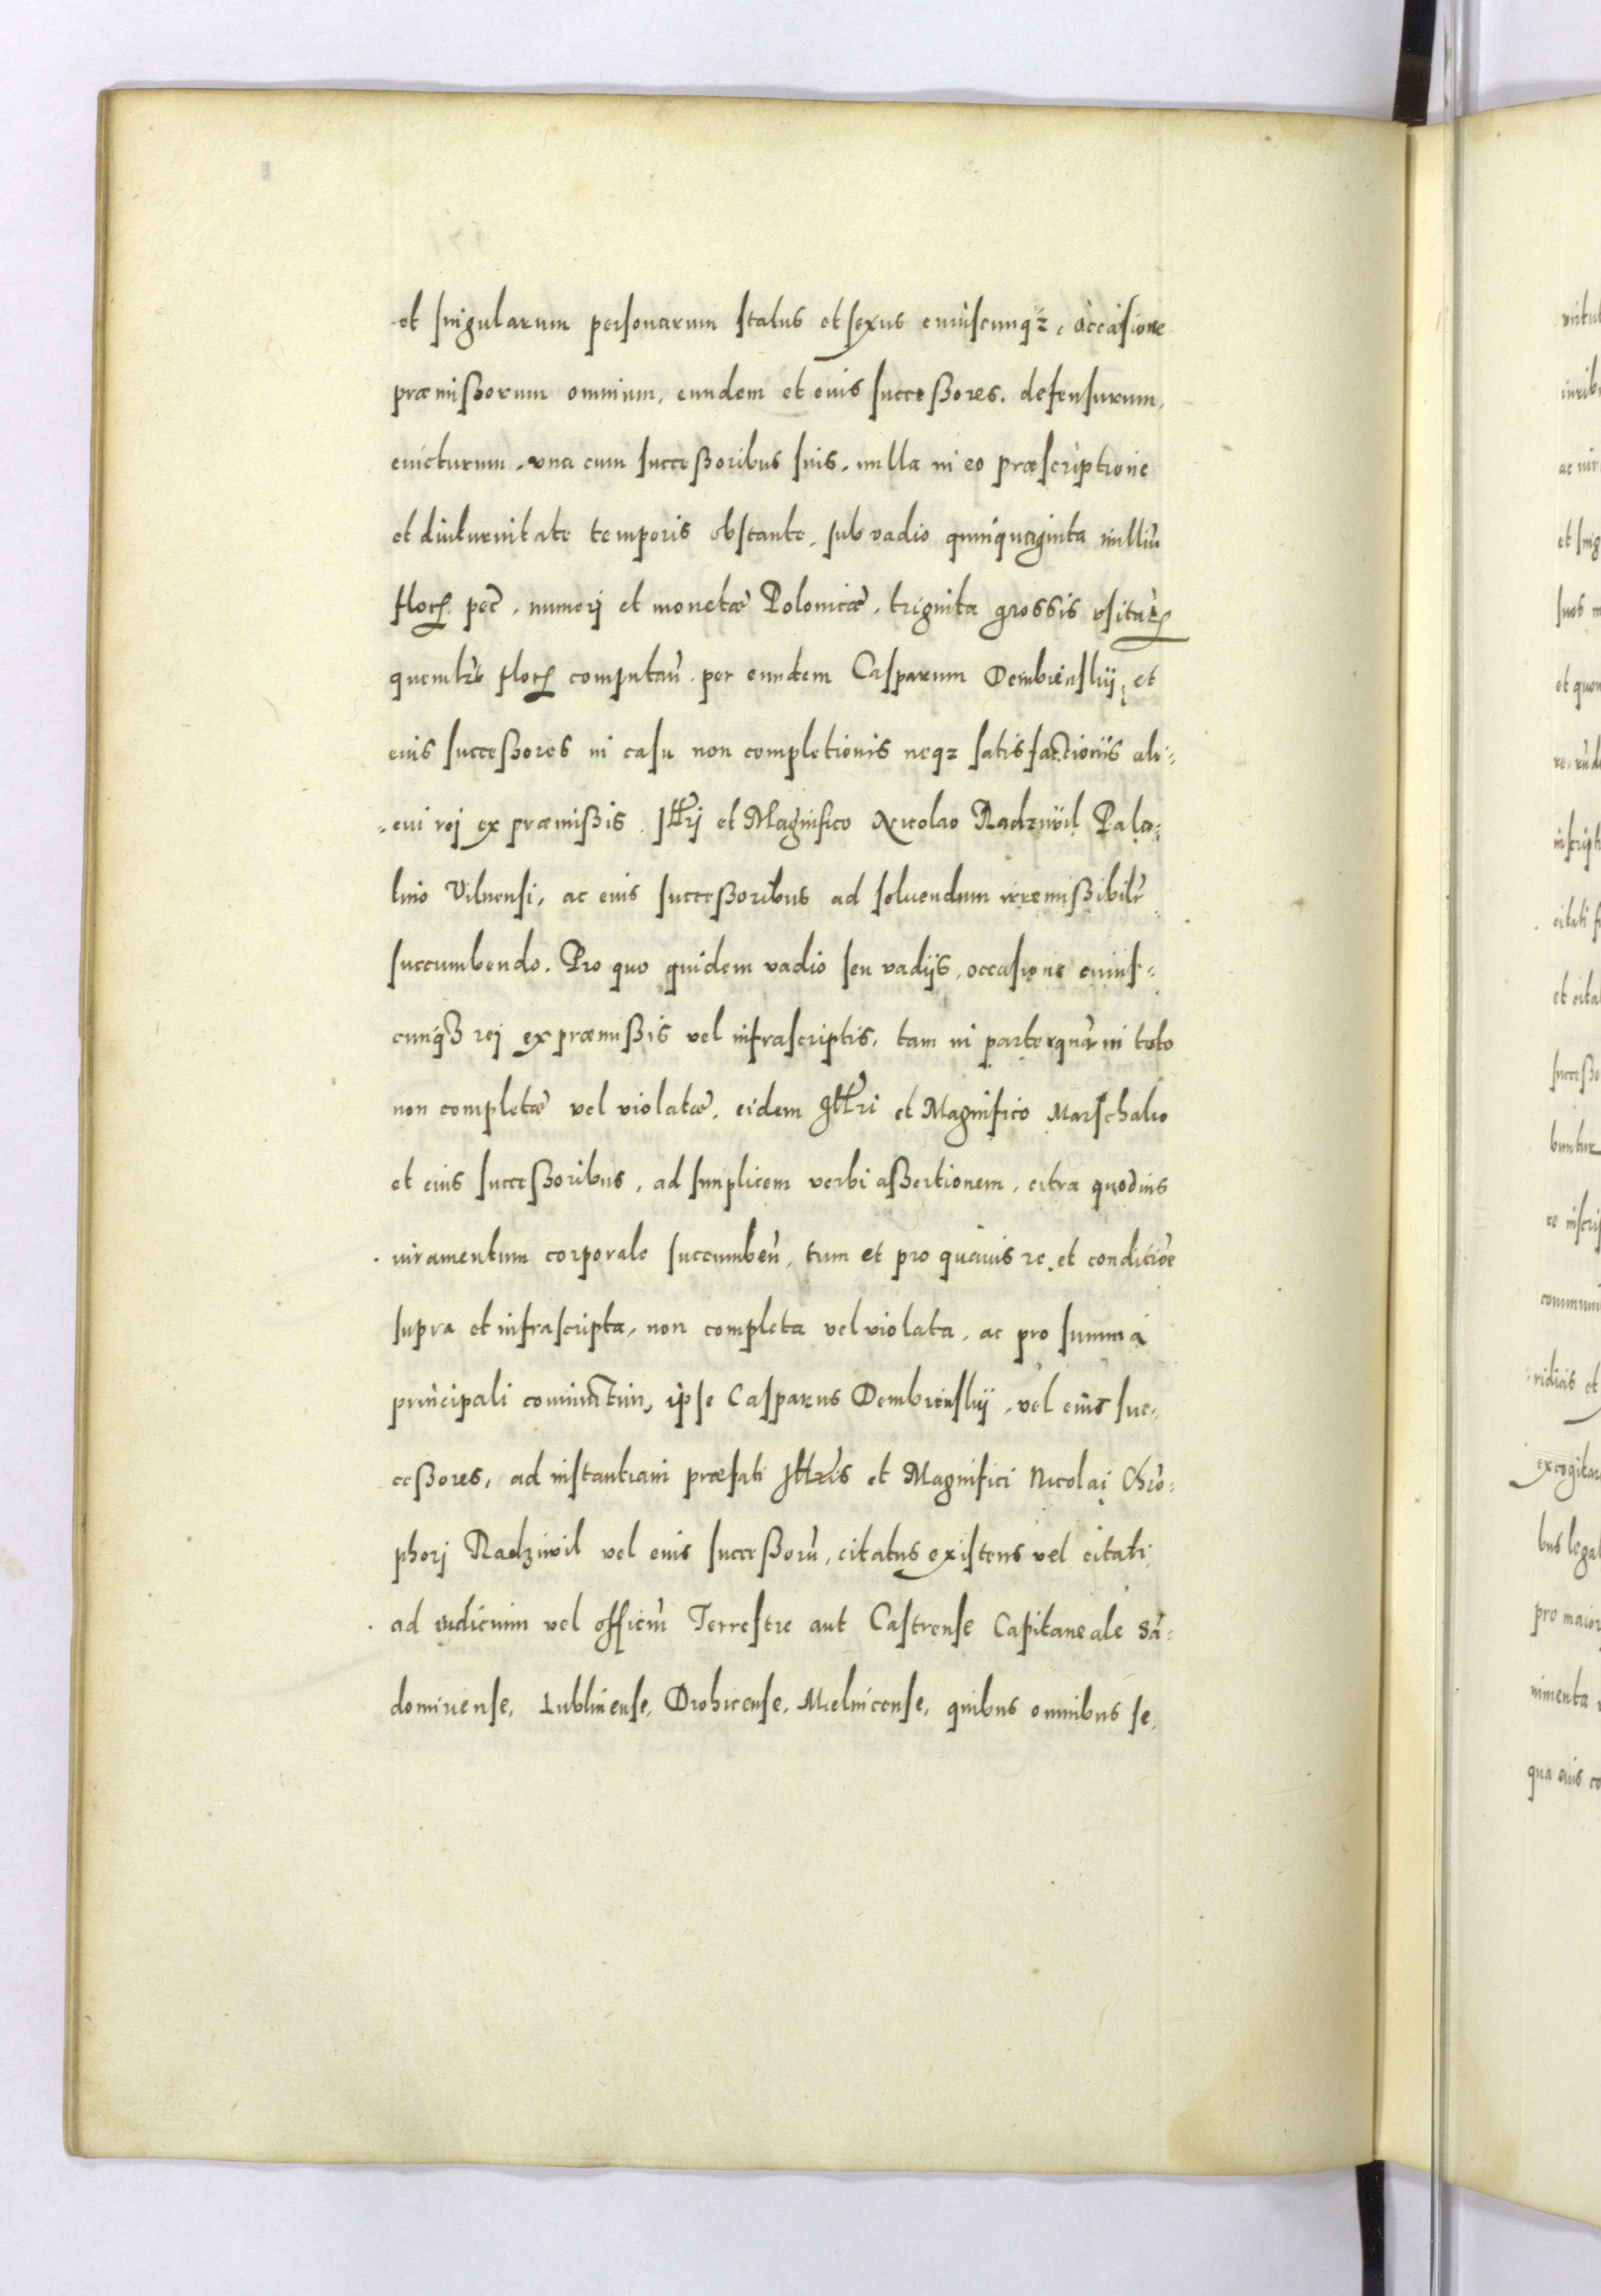 et singularum personarum status et sexus cuiuscunqz, occasione
præmißorum omnium, eundem et eius succeßores. defensurum,
euicturum. vna cum succeßoribus suis. nulla in eo præscriptione
et diuturnitate temporis obstante, sub vadio quinquaginta milliū
flor. pec̄. numeri et monetæ Polonicæ, triginta grossis vsitat.
quemlrƀ flor. computan̄. per eundem Casparum Dembienskij, et
eius succeßores in casu non completionis neqz satisfactionis ali-
-cui rej ex præmißis Illrj et Magnifico Nicolao Radziwil Pala-
tino Vilnensi, ac eius succeßoribus ad soluendum irremißibilr̄
succumbendo. Pro quo quidem vadio seu vadijs, occasione cuius-
cunqȝ rej ex præmißis vel infrascriptis, tam in parte quàm in toto
non completæ vel violatæ, eidem Illri et Magnifico Marschalco
et eius succeßoribus, ad simplicem verbi aßertionem, citra quoduis
iuramentum corporale succumben̄, tum et pro quauis re et conditiōe
supra et infrascripta, non completa vel violata, ac pro summa
principali coniunctim, ipse Casparus Dembienskij, vel eius suc-
ceßores, ad instantiam præfati Illris et Magnifici Nicolai Chr̄o-
phorj Radziwil vel eius succeßorū, citatus existens vel citati,
ad iudicium vel officiū Terrestre aut Castrense Capitaneale Sā-
domiriense, Lubliniense, Drohicense, Mielnicense, quibus omnibus se,
virtut
iuribu
et sing
suos
et quon
inscript
citati
et cita
succeßo
buntur
re inscrip
communi
-ridicis et
excogitar
bus legal
pro maior
nimenta
qua eius co